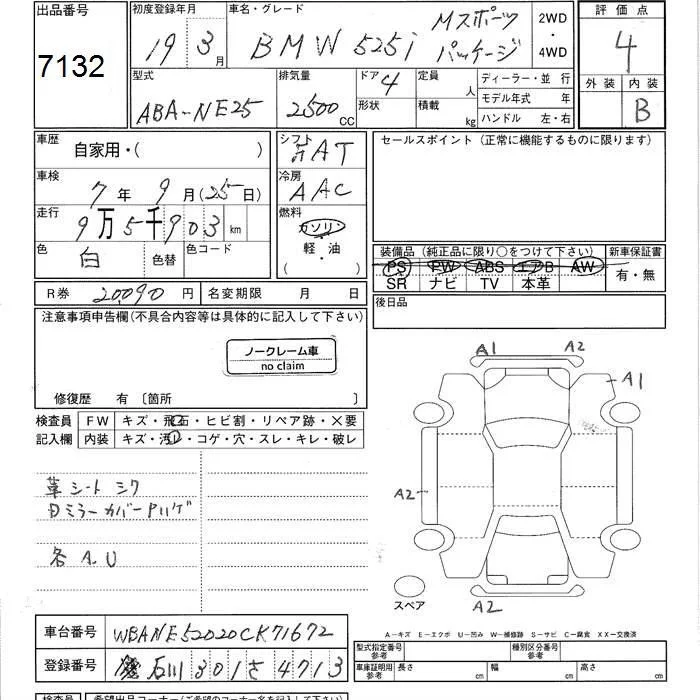 出品番号
7132
初度登録年月
19 3月
車名・グレード
BMW 525i Mスポーツ
パッケージ
2WD
・
4WD
評価点
4
外装 内装
B
型式
ABA-NE25
排気量
2500CC
ドア 4
形状
定員 人
積載 kg
ディーラー・並行
モデル年式 年
ハンドル 左・右
車歴
自家用・( )
車検
7年9月(25日)
走行
9万5千903km
色
白
色替
色コード
シフト
AT
冷房
AAC
燃料
ガソリン
・
軽・油
( )
セールスポイント (正常に機能するものに限ります)
装備品 (純正品に限り○をつけて下さい)
PS FW ABS エアB AW
SR ナビ TV 本革
新車保証書
有・無
R券 20090円
名変期限 月 日
後日品
注意事項申告欄(不具合内容等は具体的に記入して下さい)
ノークレーム車
no claim
修復歴 有 〔箇所 〕
検査員
記入欄
FW キズ・飛石・ヒビ割・リペア跡・×要
内装 キズ・汚レ・コゲ・穴・スレ・キレ・破レ
革シート シワ
各A.U
A1 A2
A1
A2
A2
スペア
A-キズ E-エクボ U-凹み W-補修跡 S-サビ C-腐食 XX-交換済
車台番号
WBANE52020CK71672
登録番号
石川301さ4713
型式指定番号
参考
種別区分番号
参考
車庫証明用
参考
長さ cm
幅 cm
高さ cm
検査員
希望出品コーナー(ご希望のコーナー名を記入して下さい)